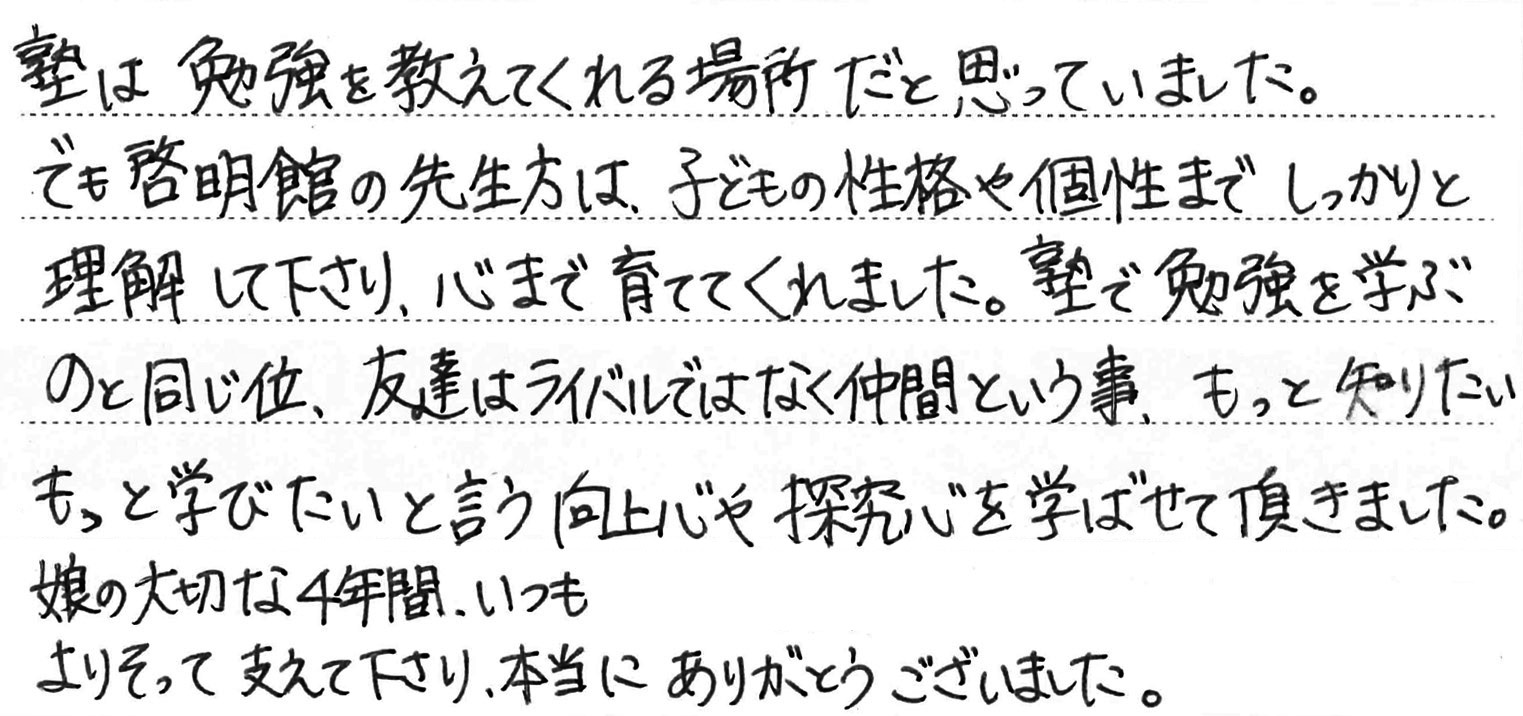 塾は勉強を教えてくれる場所だと思っていました。
でも啓明館の先生方は、子どもの性格や個性までしっかりと
理解して下さり、心まで育ててくれました。塾で勉強を学ぶ
のと同じ位、友達はライバルではなく仲間という事、もっと知りたい
もっと学びたいと言う向上心や探究心を学ばせて頂きました。
娘の大切な4年間、いつも
よりそって支えて下さり、本当にありがとうございました。